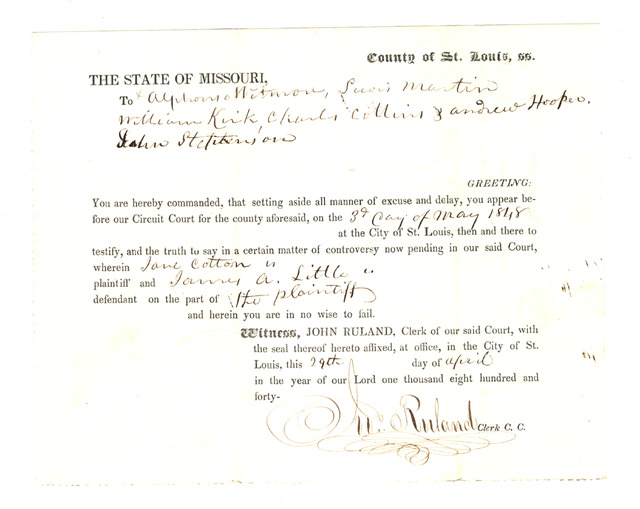 County of St. Louis, ss.
THE STATE OF MISSOURI,
To Alphonso Wetmore, Lewis Martin
William Kirk Charles Collins & Andrew Hooper.
John Stephenson
GREETING:
You are hereby commanded, that setting aside all manner of excuse and delay, you appear be-
fore our Circuit Court for the county aforesaid, on the 3d day of May 1848
at the City of St. Louis, then and there to
testify, and the truth to say in a certain matter of controversy now pending in our said Court,
wherein Jane Cotton is
plaintiff and James A. Little is
defendant on the part of the plaintiff
and herein you are in no wise to fail.
Witness, JOHN RULAND, Clerk of our said Court, with
the seal thereof hereto affixed, at office, in the City of St.
Louis, this 29th day of April
in the year of our Lord one thousand eight hundred and
forty-
Jno. Ruland Clerk C. C.